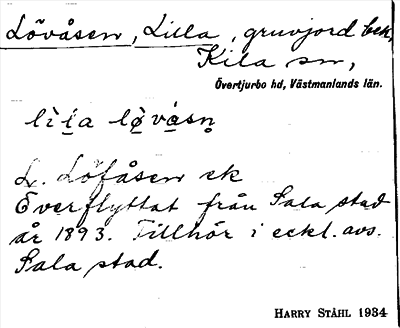 Lövåsen, Lilla, gruvjord bek,
Kila sn,
Övertjurbo hd, Västmanlands län.
lìl̀a lö̀vå̀sn̥
L. Löfåsen ek
Överflyttat från Sala stad
år 1893. Tillhör i eckl. avs.
Sala stad.
HARRY STÅHL 1934